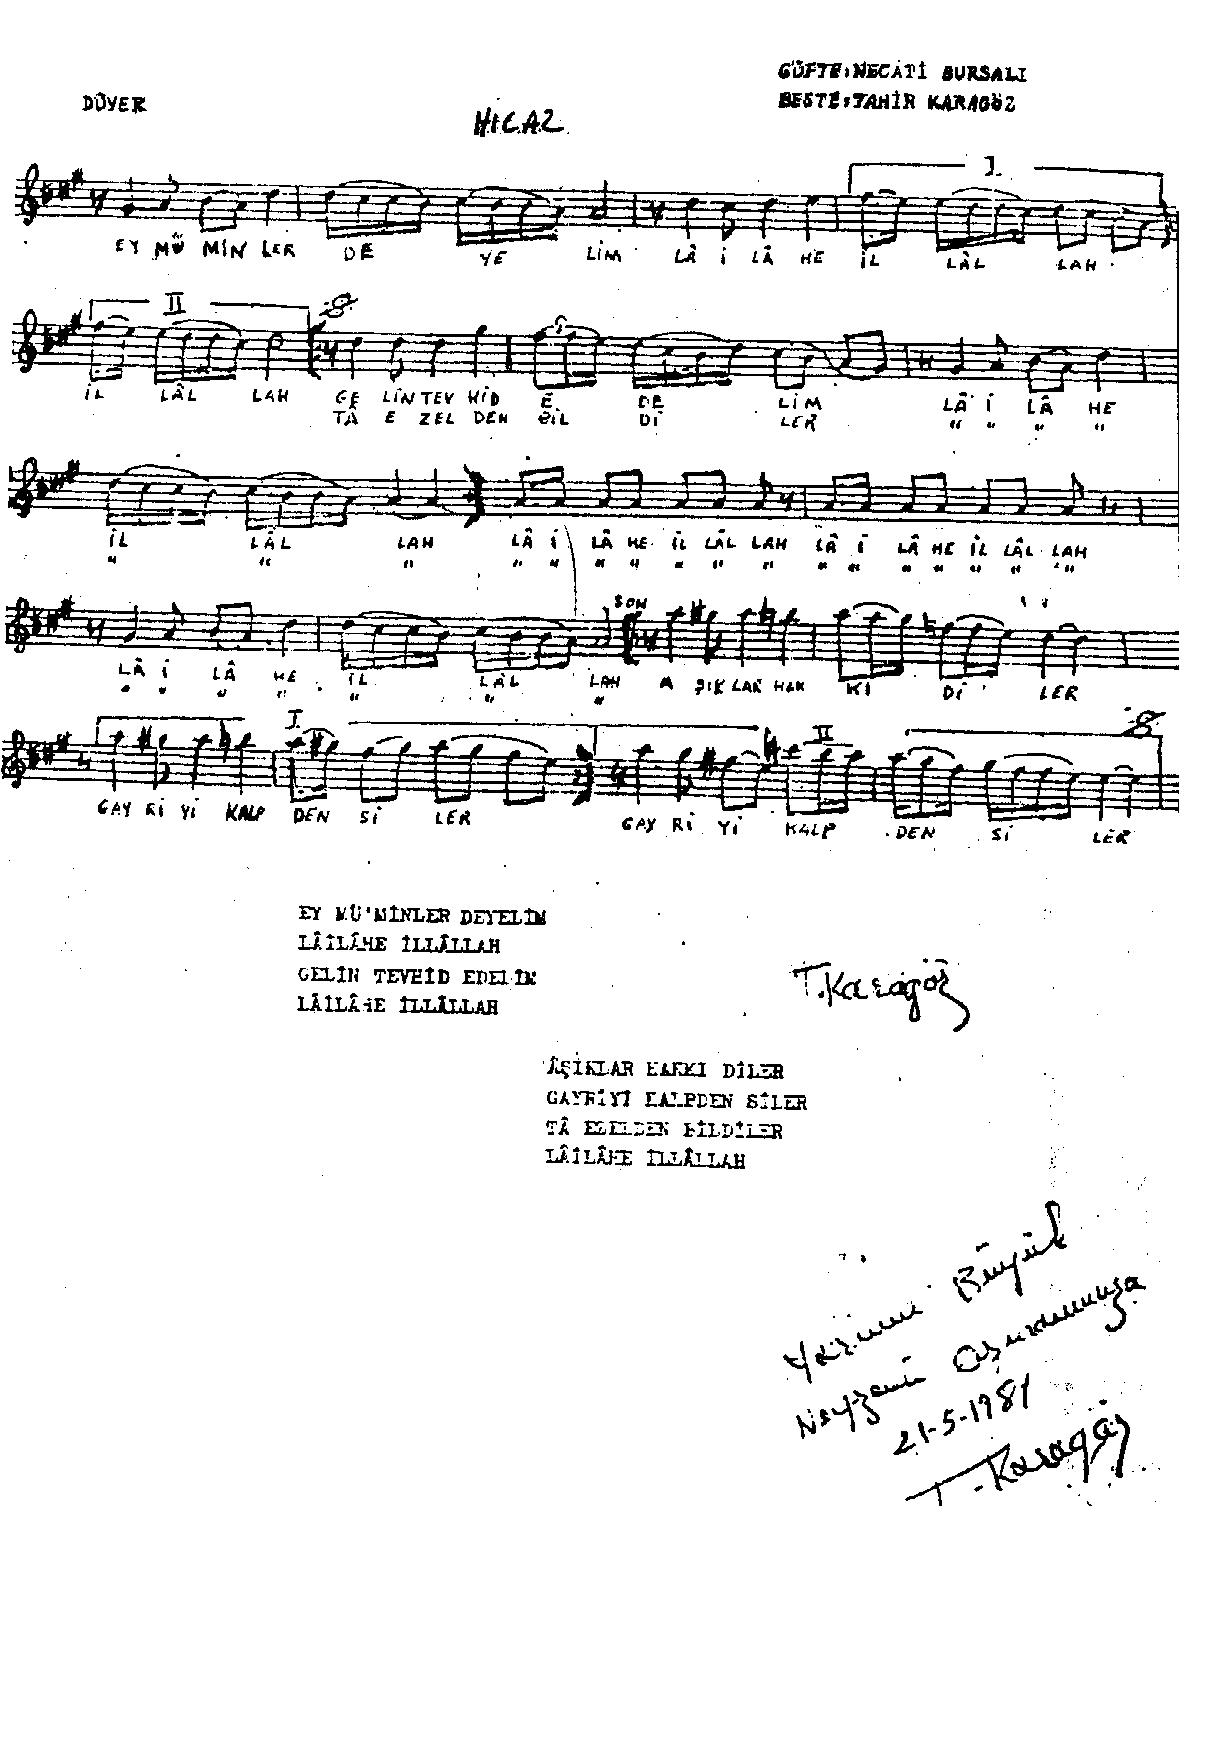 GÜFTE:NECATİ BURSALI
DÜYEK
BESTE:TAHİR KARAGÖZ
HİCAZ
I
EY MÜ MİN LER DE YE LİM LÂ İ LÂ HE İL LÂL LAH
II
İL LÂL LAH GE LİN TEV HİD E DE LİM LÂ İ LÂ HE
TA E ZEL DEN BİL Dİ LER " " " "
İL LÂL LAH LÂ İ LÂ HE İL LÂL LAH LÂ İ LÂ HE İL LÂL LAH
" " " " " " " " " " " " " " " " "
SON
LÂ İ LÂ HE İL LÂL LAH A ŞIK LAR HAK KI Dİ LER
" " " " " " "
I II
GAY Rİ Yİ KALP DEN Sİ LER GAY Rİ Yİ KALP DEN Sİ LER
EY MÜ'MİNLER DEYELİM
LÂİLÂHE İLLÂLLAH
GELİN TEVHİD EDELİM
LÂİLÂHE İLLÂLLAH
T.Karagöz
ÂŞİKLAR HAKKI DİLER
GAYRİYİ KALPDEN SİLER
TÂ EZELDEN BİLDİLER
LÂİLÂHE İLLÂLLAH
Yarının Büyük
Neyzeni
21-5-1981
T. Karagöz